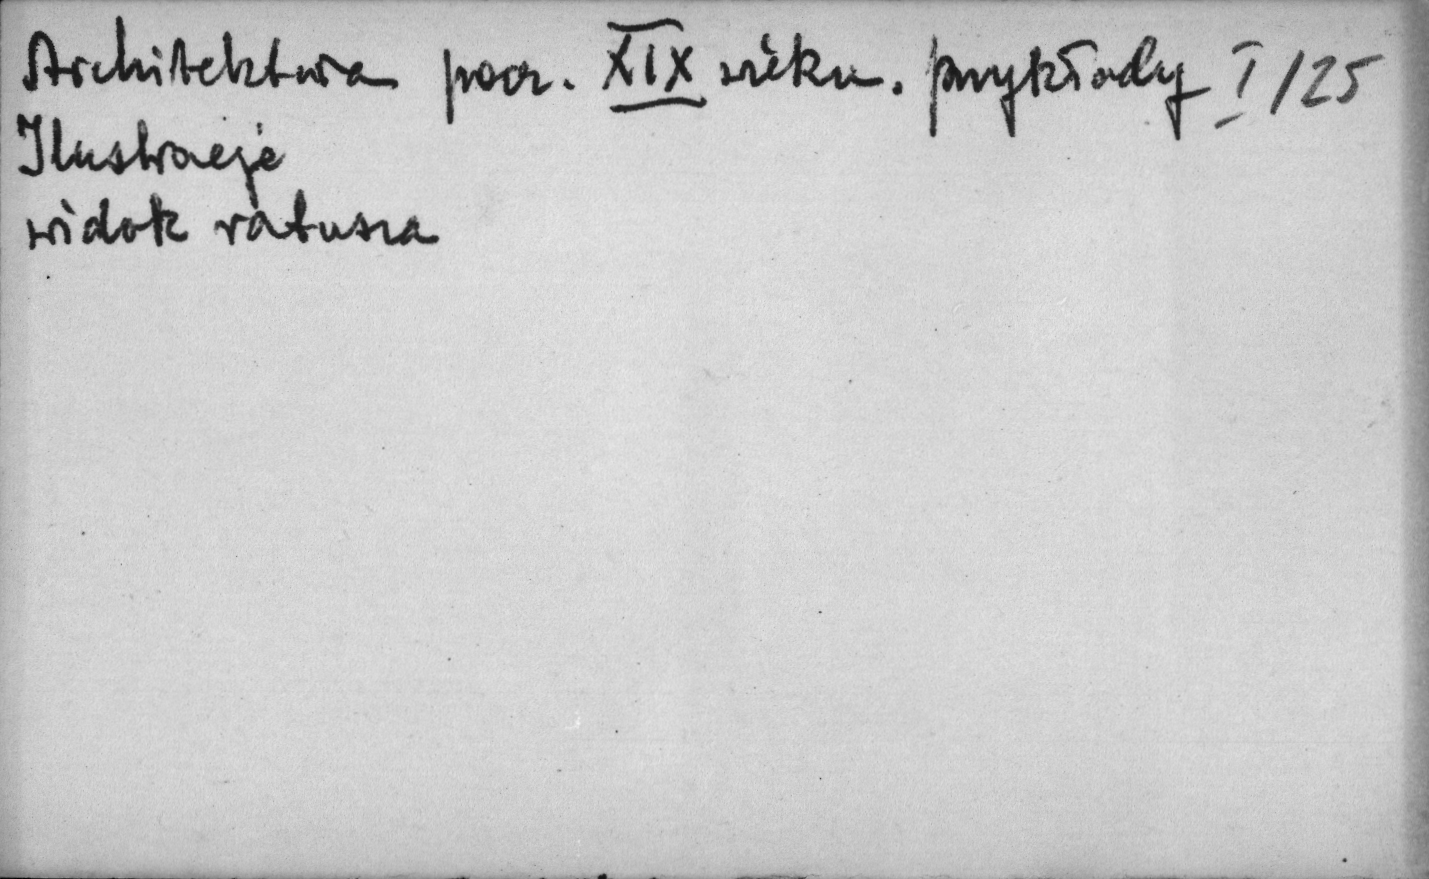 Architektura pocz. XIX wieku. przykłady I/25
Ilustracje
widok ratusza